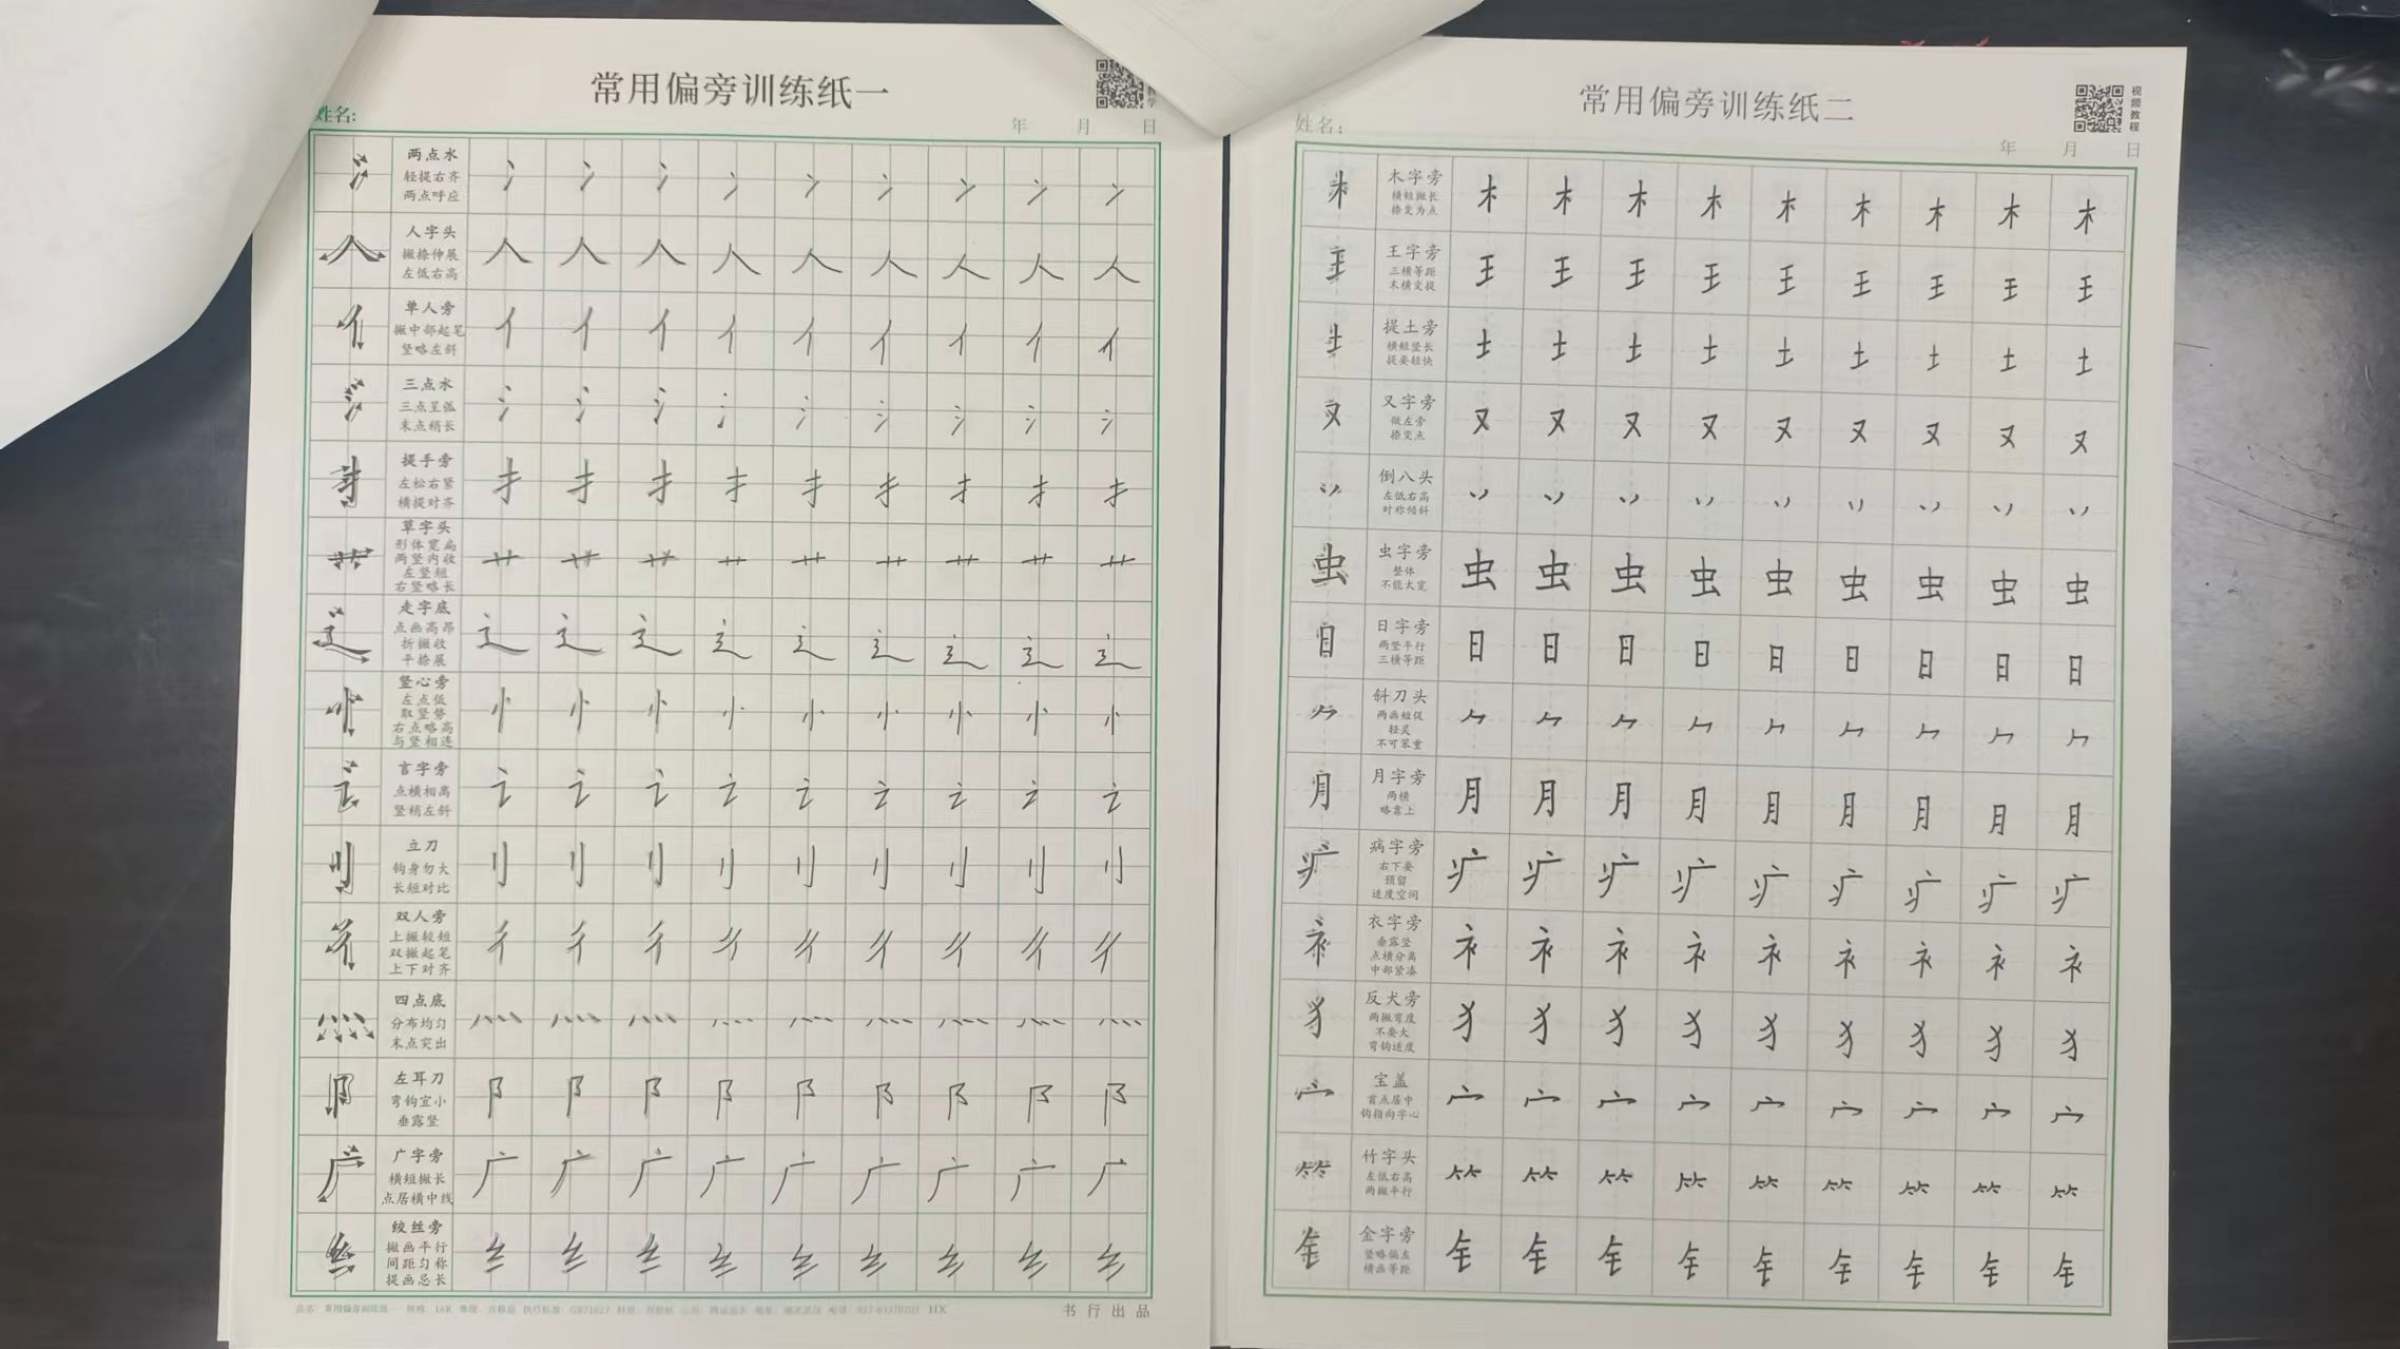 常用偏旁训练纸一
姓名:
年 月 日
两点水
轻提右齐
两点呼应
冫 冫 冫 冫 冫 冫 冫 冫 冫 冫
人字头
撇捺伸展
左低右高
人 人 人 人 人 人 人 人 人 人
单人旁
撇中部起笔
竖略左斜
亻 亻 亻 亻 亻 亻 亻 亻 亻 亻
三点水
三点呈弧
末点稍长
氵 氵 氵 氵 氵 氵 氵 氵 氵 氵
提手旁
左松右紧
横提对齐
扌 扌 扌 扌 扌 扌 扌 扌 扌 扌
草字头
形体宽扁
两竖内收
左竖短
右竖略长
艹 艹 艹 艹 艹 艹 艹 艹 艹 艹
走字底
点画高昂
折撇收
平捺展
辶 辶 辶 辶 辶 辶 辶 辶 辶 辶
竖心旁
左点低
取竖势
右点略高
与竖相连
忄 忄 忄 忄 忄 忄 忄 忄 忄 忄
言字旁
点横相离
竖稍左斜
讠 讠 讠 讠 讠 讠 讠 讠 讠 讠
立刀
钩身勿大
长短对比
刂 刂 刂 刂 刂 刂 刂 刂 刂 刂
双人旁
上撇较短
双撇起笔
上下对齐
彳 彳 彳 彳 彳 彳 彳 彳 彳 彳
四点底
分布均匀
末点突出
灬 灬 灬 灬 灬 灬 灬 灬 灬 灬
左耳刀
弯钩宜小
垂露竖
阝 阝 阝 阝 阝 阝 阝 阝 阝 阝
广字旁
横短撇长
点居横中线
广 广 广 广 广 广 广 广 广 广
绞丝旁
撇画平行
间距匀称
提画忌长
纟 纟 纟 纟 纟 纟 纟 纟 纟 纟
书行出品
常用偏旁训练纸二
视频教程
姓名:
年 月 日
木字旁
横短撇长
捺变为点
木 木 木 木 木 木 木 木 木 木
王字旁
三横等距
末横变提
王 王 王 王 王 王 王 王 王 王
提土旁
横短竖长
提要轻快
土 土 土 土 土 土 土 土 土 土
又字旁
做左旁
捺变点
又 又 又 又 又 又 又 又 又 又
倒八头
左低右高
对称倾斜
丷 丷 丷 丷 丷 丷 丷 丷 丷 丷
虫字旁
整体
不能太宽
虫 虫 虫 虫 虫 虫 虫 虫 虫 虫
日字旁
两竖平行
三横等距
日 日 日 日 日 日 日 日 日 日
斜刀头
两画短促
轻灵
不可笨重
⺈ ⺈ ⺈ ⺈ ⺈ ⺈ ⺈ ⺈ ⺈ ⺈
月字旁
两横
略靠上
月 月 月 月 月 月 月 月 月 月
病字旁
右下要
预留
适度空间
疒 疒 疒 疒 疒 疒 疒 疒 疒 疒
衣字旁
垂露竖
点横分离
中部紧凑
衤 衤 衤 衤 衤 衤 衤 衤 衤 衤
反犬旁
两撇弯度
不要大
弯钩适度
犭 犭 犭 犭 犭 犭 犭 犭 犭 犭
宝盖
首点居中
钩指向字心
宀 宀 宀 宀 宀 宀 宀 宀 宀 宀
竹字头
左低右高
两撇平行
⺮ ⺮ ⺮ ⺮ ⺮ ⺮ ⺮ ⺮ ⺮ ⺮
金字旁
竖略偏左
横画等距
钅 钅 钅 钅 钅 钅 钅 钅 钅 钅